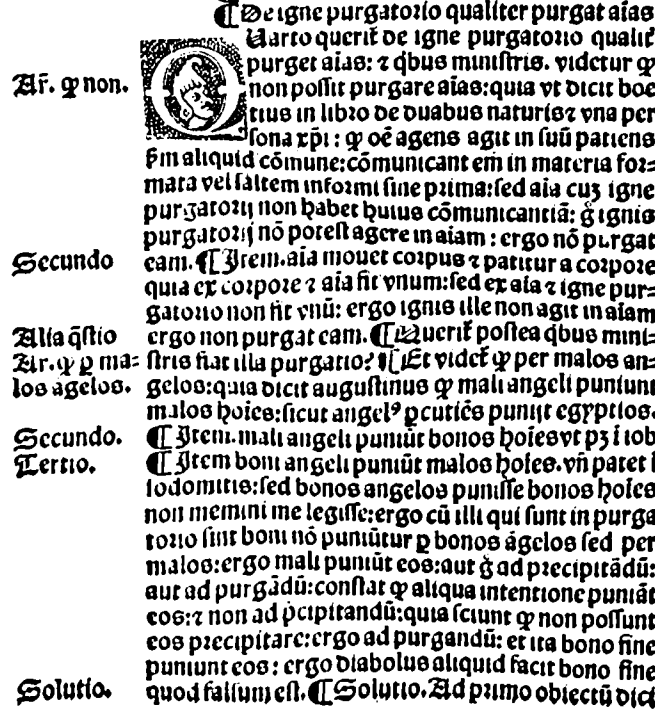 ¶ De igne purgatorio qualiter purgat aīas
Quarto querit̄ de igne purgatorio qualit̄
purget aīas: ⁊ q̇bus ministris. videtur ꝙ
Ar̄. ꝙ non.
non possit purgare aīas: quia vt dicit boe
tius in libro de duabus naturis ⁊ vna per
sona xp̄i: ꝙ oē agens agit in suū patiens
ẜm aliquid cōmune: cōmunicant em̄ in materia for⸗
mata vel saltem informi siue prima: sed aīa cuꝫ igne
purgatorij non habet huius cōmunicantiā: g̊ ignis
purgatorij nō potest agere in aīam: ergo nō purgat
Secundo
eam. ¶ Item. aīa mouet corpus ⁊ patitur a corpore
quia ex corpore ⁊ aīa fit vnum: sed ex aīa ⁊ igne pur⸗
gatorio non fit vnū: ergo ignis ille non agit in aīam
Alia q̄stio
ergo non purgat eam. ¶ Querit̄ postea q̇bus mini⸗
Ar. ꝙ ꝑ ma⸗
stris fiat illa purgatio? ¶ Et videt̄ ꝙ per malos an⸗
los āgelos.
gelos: quia dicit augustinus ꝙ mali angeli puniunt
malos hoīes: sicut angelꝰ ꝑcutiēs punijt egyptios.
Secundo.
¶ Item. mali angeli puniūt bonos hoīes vt pꝫ ī iob
Tertio.
¶ Item boni angeli puniūt malos hoīes. vn̄ patet ī
sodomitis: sed bonos angelos punisse bonos hoīes
non memini me legisse: ergo cū illi qui sunt in purga
torio sint boni nō puniūtur ꝑ bonos āgelos sed per
malos: ergo mali puniūt eos: aut g̊ ad precipitādū:
aut ad purgādū: constat ꝙ aliqua intentione puniāt
eos: ⁊ non ad p̄cipitandū: quia sciunt ꝙ non possunt
eos precipitare: ergo ad purgandū: et ita bono fine
puniunt eos: ergo diabolus aliquid facit bono fine
Solutio.
quod falsum est. ¶ Solutio. Ad primo obiectū dici